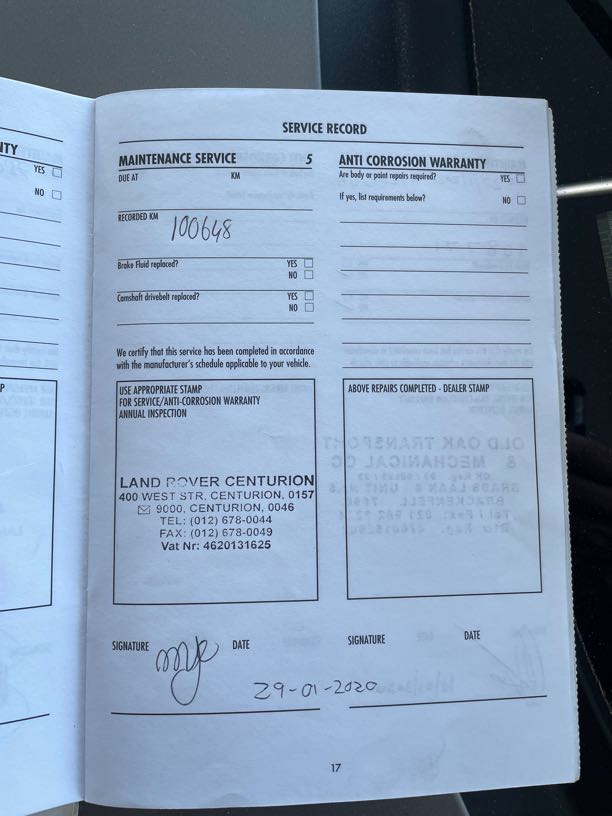 NTY
YES
NO
SERVICE RECORD
MAINTENANCE SERVICE 5
DUE AT KM
RECORDED KM
100648
Brake Fluid replaced? YES
NO
Camshaft drivebelt replaced? YES
NO
We certify that this service has been completed in accordance
with the manufacturer's schedule applicable to your vehicle.
USE APPROPRIATE STAMP
FOR SERVICE/ANTI-CORROSION WARRANTY
ANNUAL INSPECTION
LAND ROVER CENTURION
400 WEST STR, CENTURION, 0157
9000, CENTURION, 0046
TEL: (012) 678-0044
FAX: (012) 678-0049
Vat Nr: 4620131625
SIGNATURE DATE
29-01-2020
ANTI CORROSION WARRANTY
Are body or paint repairs required? YES
If yes, list requirements below? NO
ABOVE REPAIRS COMPLETED - DEALER STAMP
OLD OAK TRANSPORT
& MECHANICAL CC
SIGNATURE DATE
17